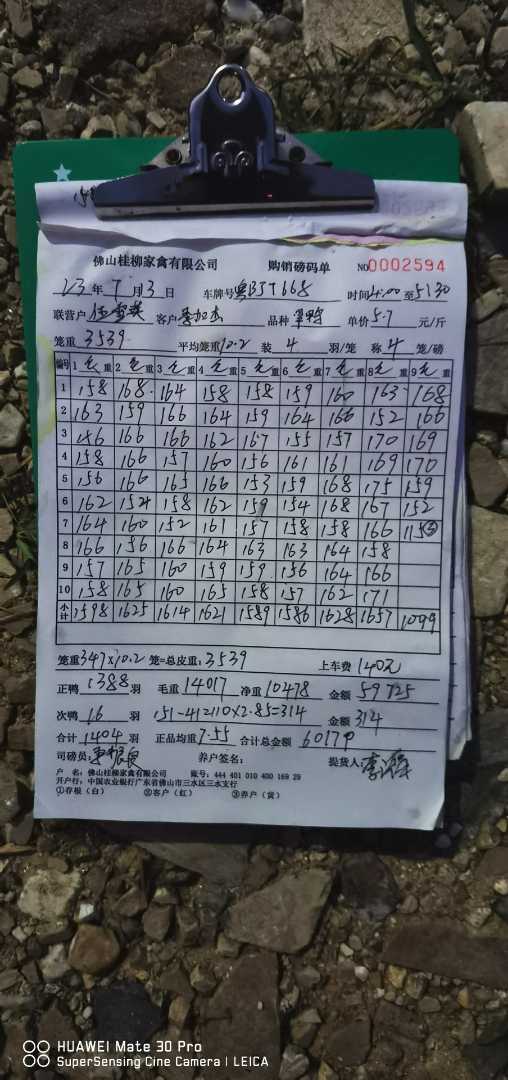 佛山桂柳家禽有限公司 购销磅码单 NO0002594
23年7月3日 车牌号粤BJT668 时间4:00至5:30
联营户 客户 品种 单价5.7元/斤
笼重3539 平均笼重10.2 装4羽/笼 称4笼/磅
编号 1毛重 2毛重 3毛重 4毛重 5毛重 6毛重 7毛重 8毛重 9毛重
1 158 168 164 158 158 159 160 163 168
2 163 159 166 164 159 164 166 152 166
3 146 166 166 162 167 155 157 170 169
4 158 166 157 160 156 161 161 169 170
5 156 166 165 166 153 159 168 175 159
6 162 154 158 162 159 154 168 167 152
7 164 160 152 161 157 158 158 166 115③
8 166 156 166 164 163 163 164 158
9 157 165 160 159 159 156 164 166
10 158 165 160 165 158 157 162 171
小计 1598 1625 1614 1621 1589 1586 1628 1657 1099
笼重347×10.2 笼=总皮重:3539 上车费140元
正鸭1388羽 毛重14017 净重10478 金额59725
次鸭16羽 151-41=110×2.85=314 金额314
合计1404羽 正品均重7.55 合计总金额60179
司磅员: 养户签名: 提货人:
户 名:佛山桂柳家禽有限公司 账号:444 401 010 400 169 29
开户行:中国农业银行广东省佛山市三水区三水支行
①存根(白) ②客户(红) ③养户(黄)
HUAWEI Mate 30 Pro
SuperSensing Cine Camera | LEICA